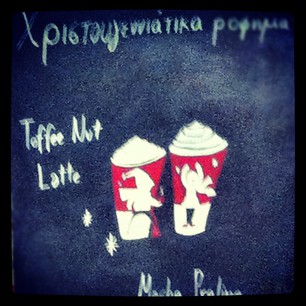 Χριστουγεννιάτικα ροφήματα
Toffee Nut
Latte
Mocha Praline